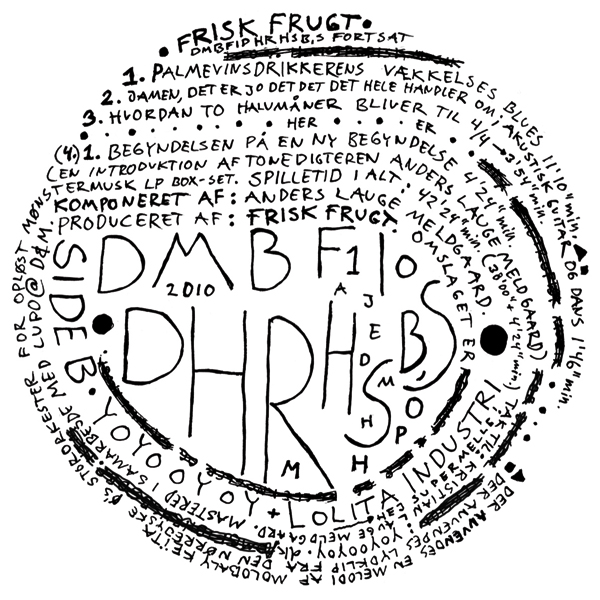 FRISK FRUGT.
DMBF1DHRHSB,S FORTSAT
1. PALMEVINSDRIKKERENS VÆKKELSES BLUES 11'10"min.
2. JAMEN, DET ER JO DET DET DET HELE HANDLER OM; AKUSTISK GUITAR OG DANS 1'46"min.
3. HVORDAN TO HALVMÅNER BLIVER TIL 4/4 → 3'54"min.
HER ER
(4.) 1. BEGYNDELSEN PÅ EN NY BEGYNDELSE 4'24"min.
(EN INTRODUKTION AF TONEDIGTEREN ANDERS LAUGE MELDGAARD)
MØNSTERMUSK LP BOX-SET. SPILLETID I ALT: 42'24"min. (38'00"+ 4'24"min.)
KOMPONERET AF: ANDERS LAUGE MELDGAARD.
PRODUCERET AF: FRISK FRUGT.
OMSLAGET ER
TAK TIL: KRISTIAN
SIDE B.
DMBF1O
2010
DHRHSB,S
A
J
E
D
M
H
O
P
H
M
YOYOOYOY + LOLITA INDUSTRI
MASTERED I SAMARBEJDE MED LUPO@ D&M.
STORORKESTER FOR OPLØST
DEN NØRREJYSKE Ø'S
DER ANVENDES EN LYDKLIP FRA
DER ANVENDES EN MELODI AF MOLOBALY KEITA
YOYOOYOY.dk.